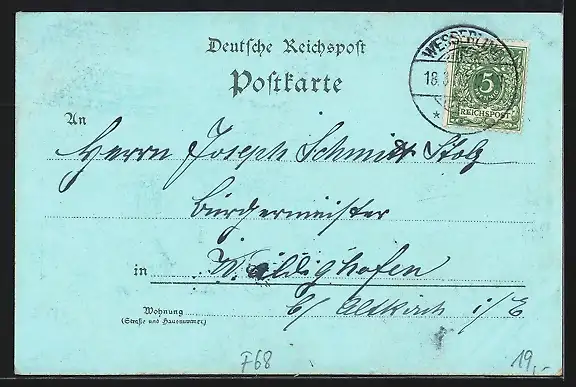 Deutsche Reichspost
Postkarte
WESSERLING
18.3
5
REICHSPOST
An
Herrn Joseph Schmitt Stolz
Bürgermeister
in Waldighofen
b/ Altkirch i/E
Wohnung
(Straße und Hausnummer)
F68
19,-